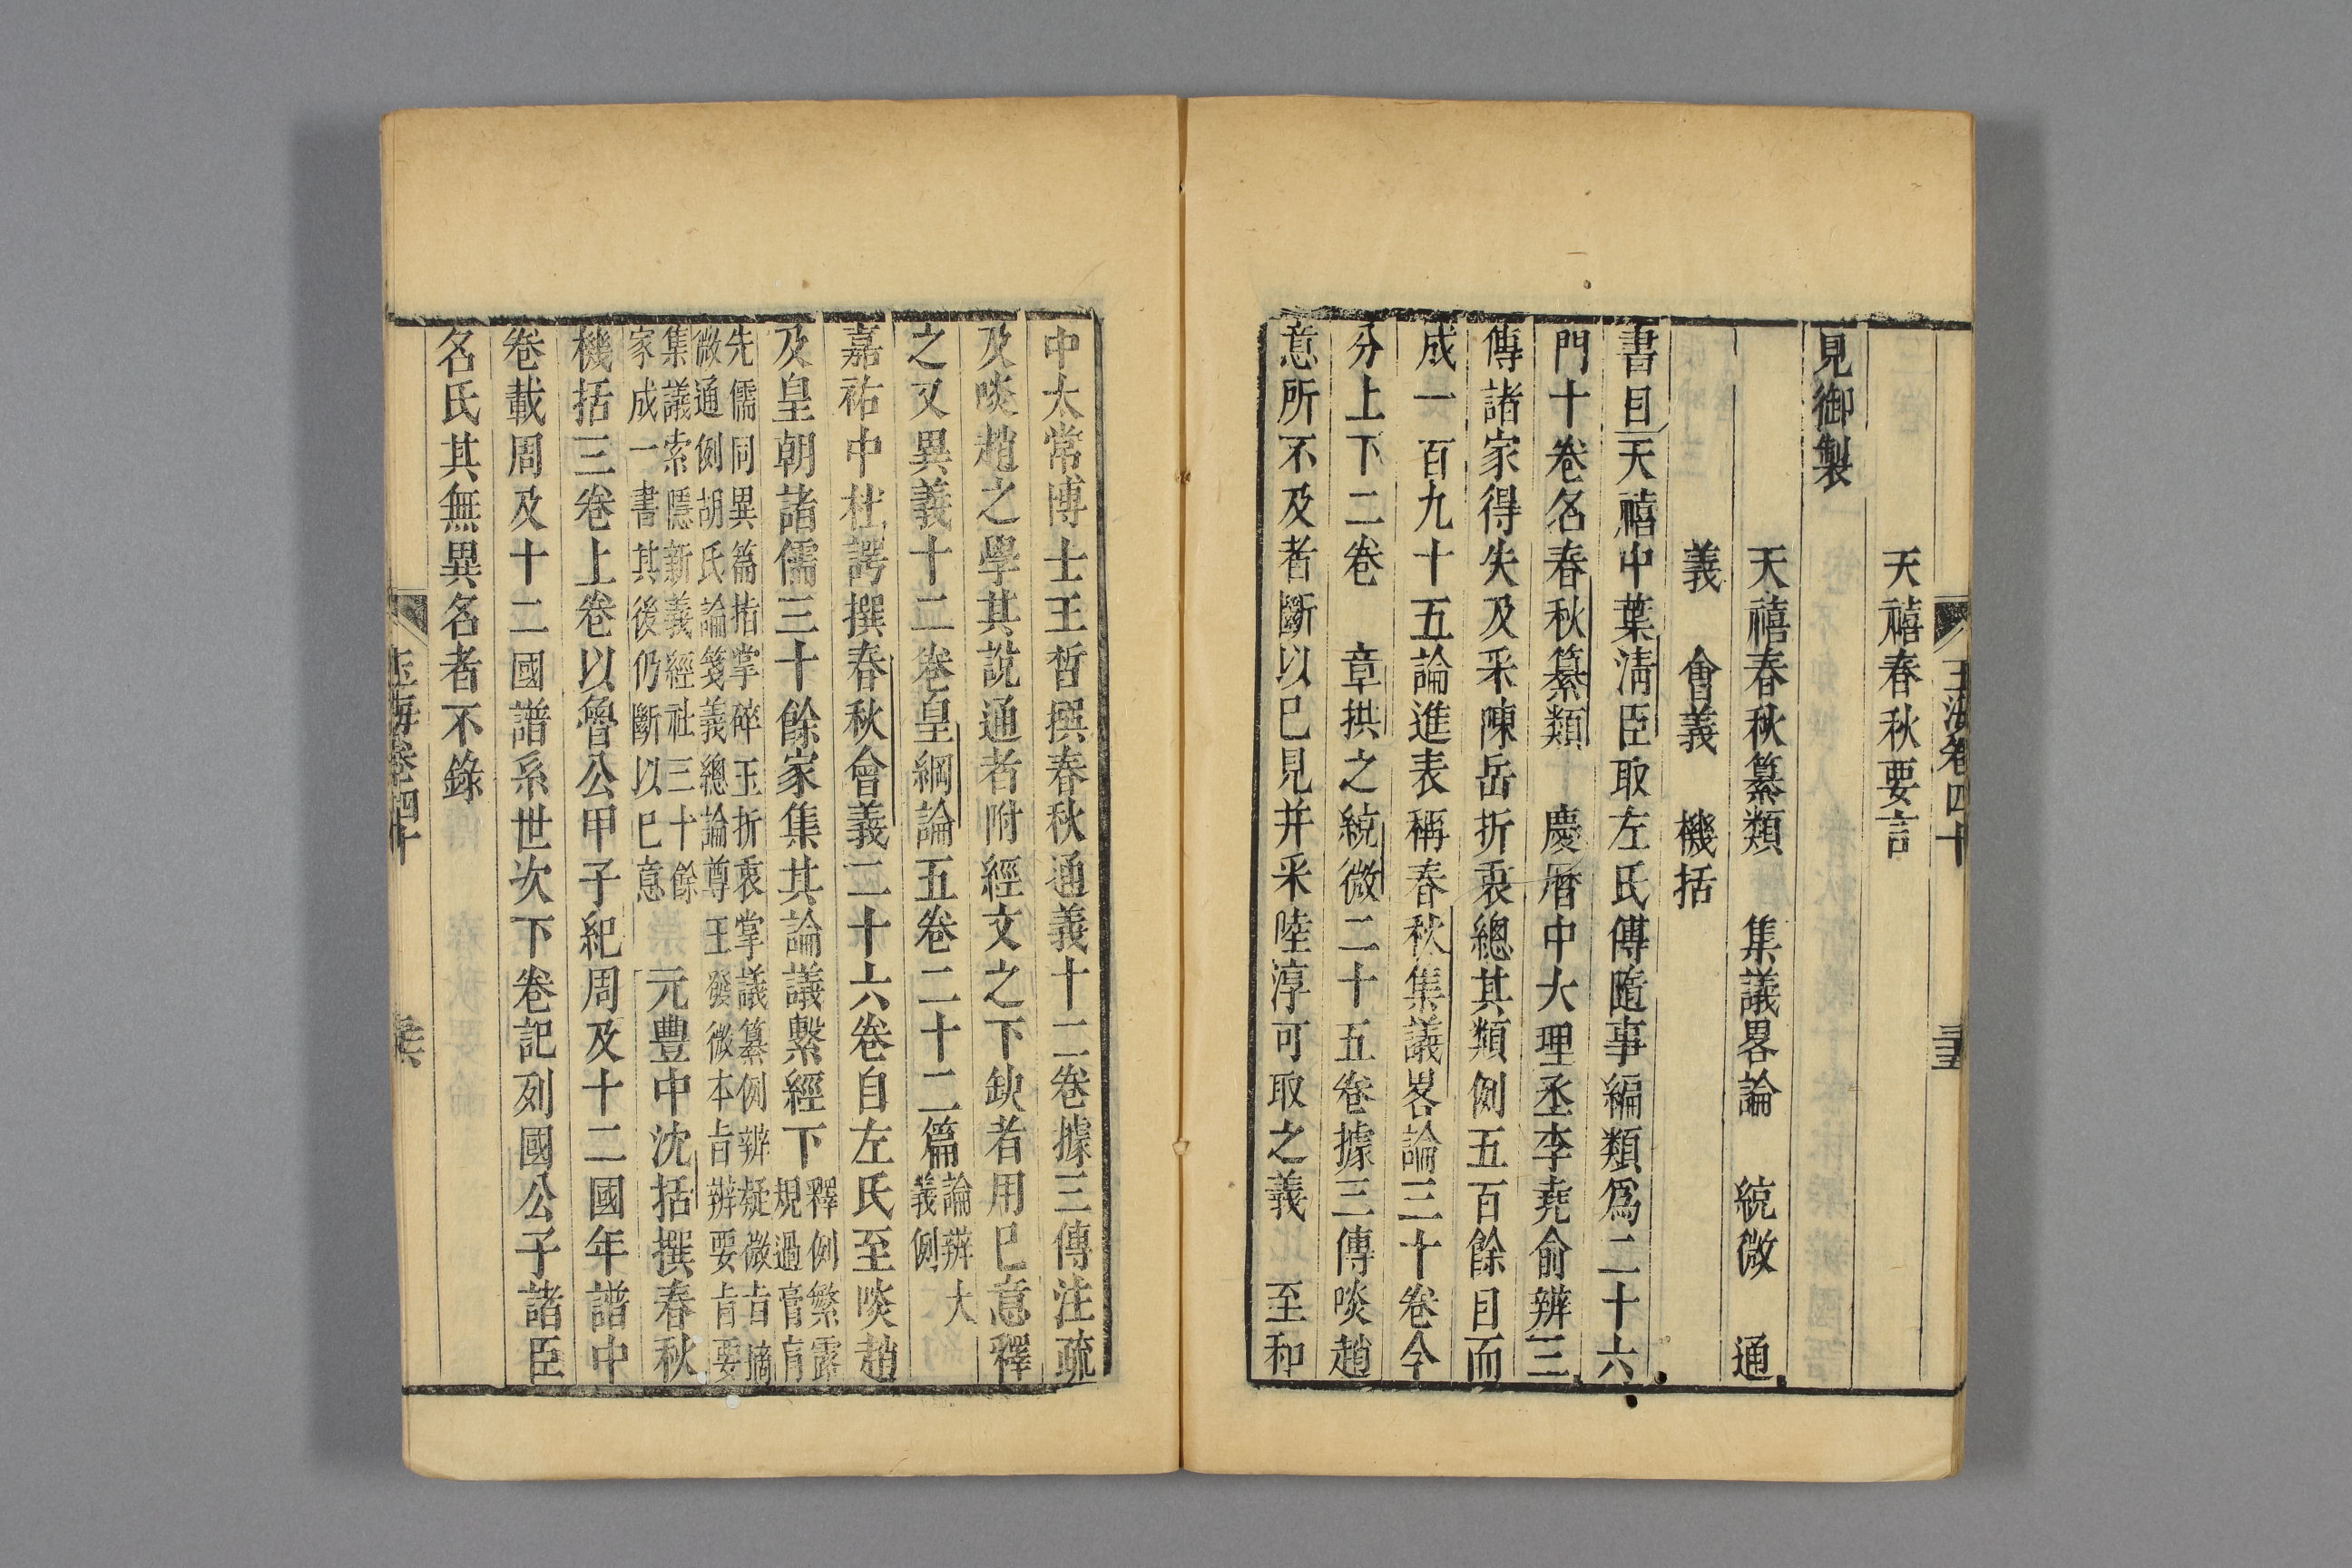 玉海卷四十
三十五
天禧春秋要言
見御製
天禧春秋纂類　集議畧論　統微　通
義　會義　機括
書目天禧中葉清臣取左氏傳隨事編類爲二十六
門十卷名春秋纂類　慶曆中大理丞李堯俞辨三
傳諸家得失及采陳岳折衷總其類例五百餘目而
成一百九十五論進表稱春秋集議畧論三十卷今
分上下二卷　章拱之統微二十五卷據三傳啖趙
意所不及者斷以已見并采陸淳可取之義　至和
中太常博士王晳撰春秋通義十二卷據三傳注疏
及啖趙之學其說通者附經文之下缺者用已意釋
之又異義十二卷皇綱論五卷二十二篇論辨大義例
嘉祐中杜諤撰春秋會義二十六卷自左氏至啖趙
及皇朝諸儒三十餘家集其論議繫經下釋例繁露規過膏肓
先儒同異篇指掌碎玉折衷掌議纂例辨疑微旨摘
微通例胡氏論箋義總論尊王發微本旨辨要旨要
集議索隱新義經社三十餘
家成一書其後仍斷以已意　元豐中沈括撰春秋
機括三卷上卷以魯公甲子紀周及十二國年譜中
卷載周及十二國譜系世次下卷記列國公子諸臣
名氏其無異名者不錄
玉海卷四十